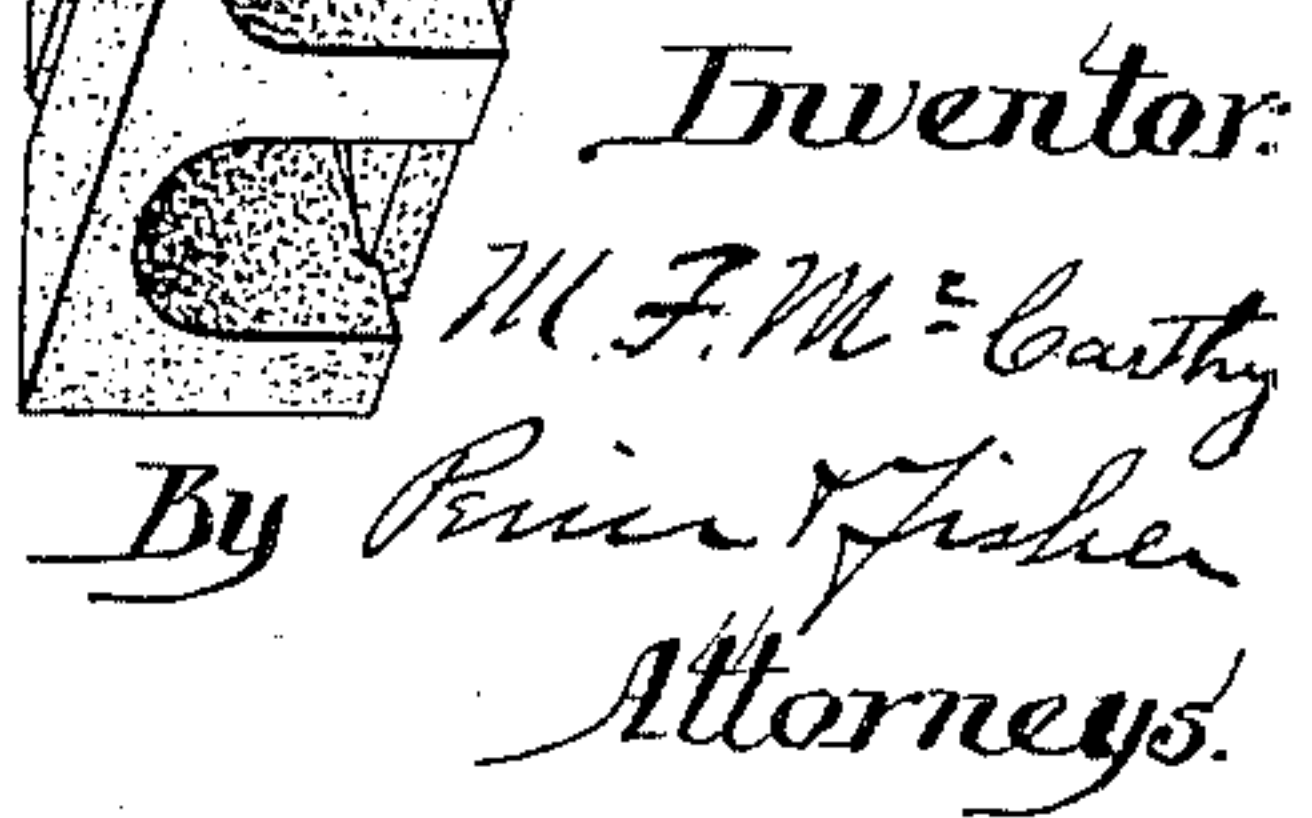 Inventor:
M. F. Mc Carthy
By Peirce & Fisher
Attorneys.